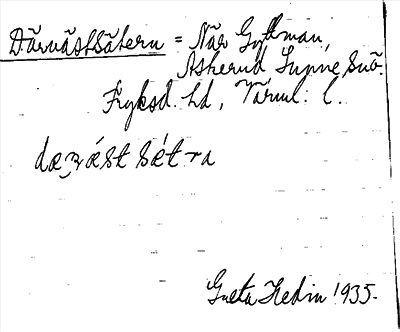 Därvästsätern = När Gyltman,
Askerud Sunne, Snö.
Fryksd. hd, Värml. l.
dæʒ vést sét ra
Greta Hedin 1935.